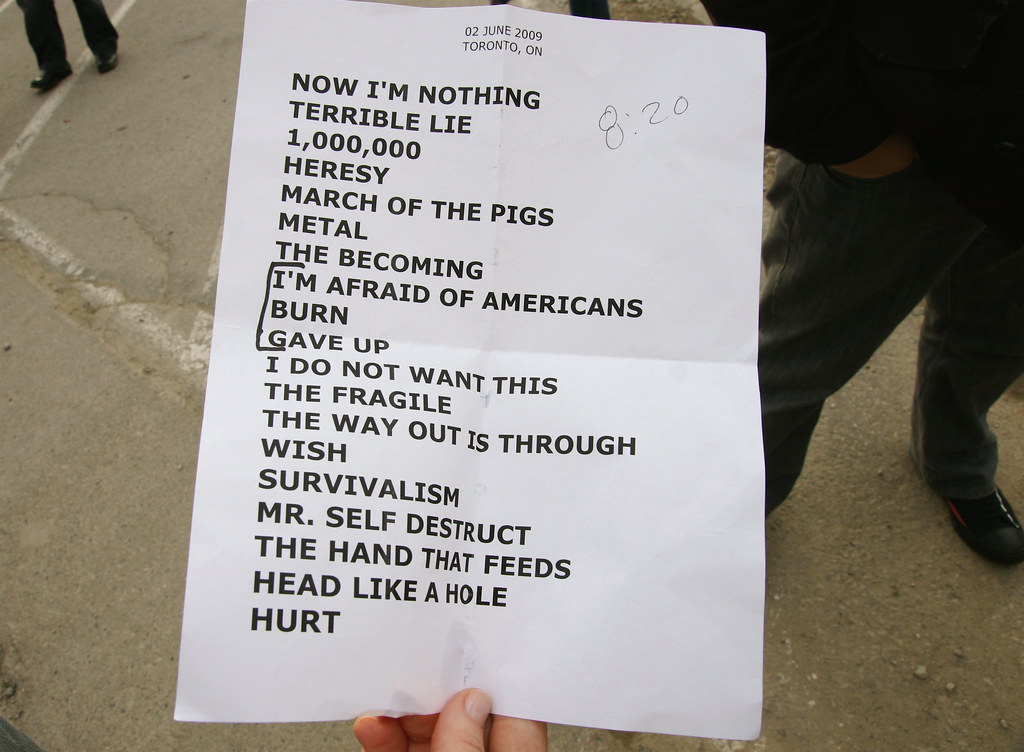 02 JUNE 2009
TORONTO, ON
8:20
NOW I'M NOTHING
TERRIBLE LIE
1,000,000
HERESY
MARCH OF THE PIGS
METAL
THE BECOMING
I'M AFRAID OF AMERICANS
BURN
GAVE UP
I DO NOT WANT THIS
THE FRAGILE
THE WAY OUT IS THROUGH
WISH
SURVIVALISM
MR. SELF DESTRUCT
THE HAND THAT FEEDS
HEAD LIKE A HOLE
HURT